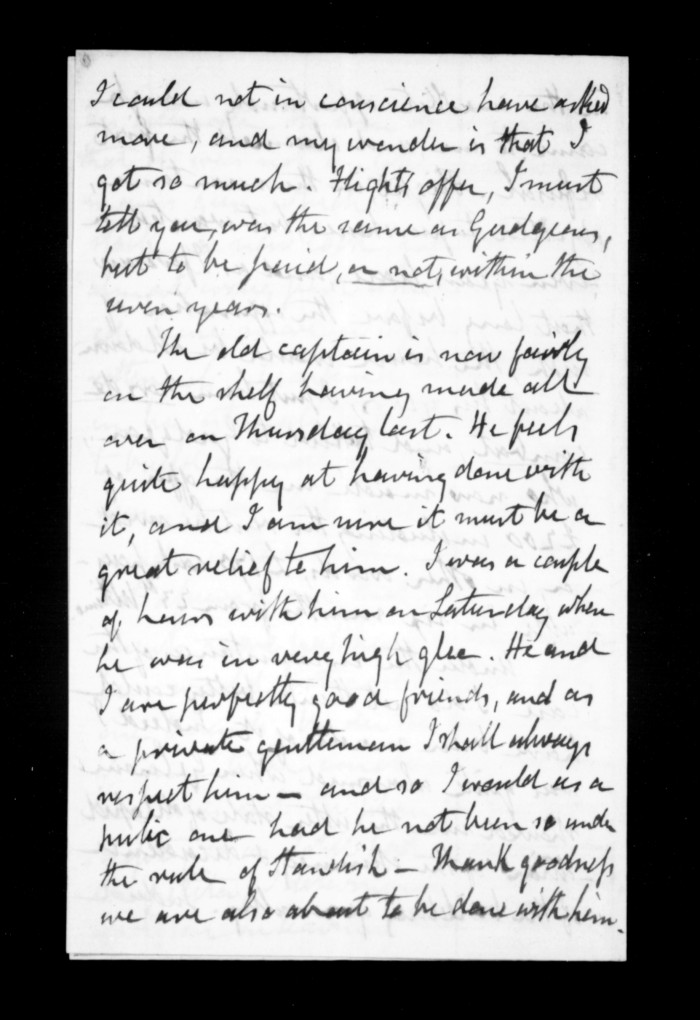 I could not in conscience have asked
more, and my wonder is that I
got so much. Hight's offer, I must
tell you, was the same as Gudgeons,
but to be paid, or not, within the
seven years.
The old captain is now fairly
on the shelf having made all
over on Thursday last. He feels
quite happy at having done with
it, and I am sure it must be a
great relief to him. I was a couple
of hours with him on Saturday when
he was in very high glee. He and
I are perfectly good friends, and as
a private gentleman I shall always
respect him — and so I would as a
public one had he not been so under
the rule of Standish — Thank goodness
we are also about to be done with him.